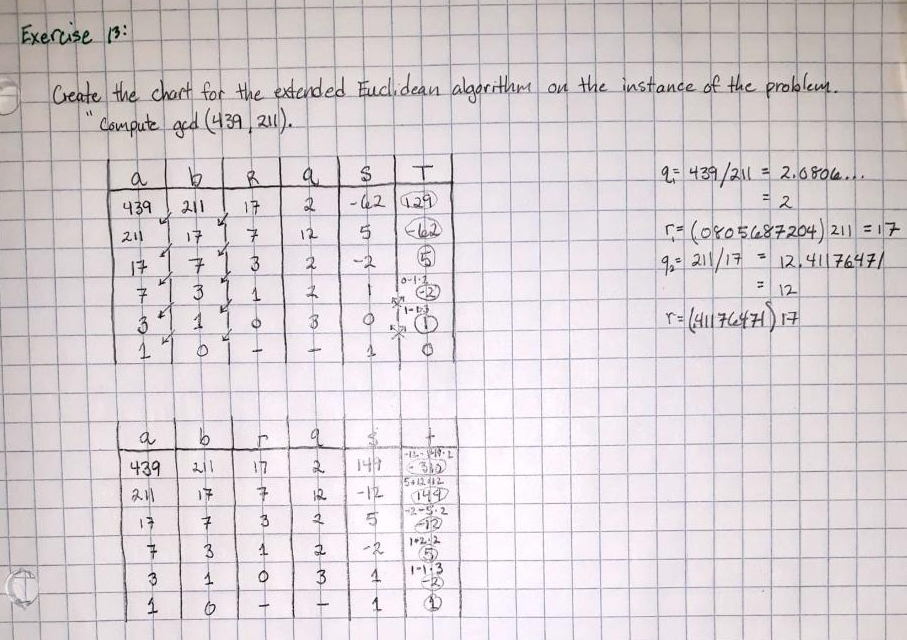 Exercise 13:
Create the chart for the extended Euclidean algorithm on the instance of the problem.
"Compute gcd (439, 211).
a b R q S T
439 211 17 2 -62 129
211 17 7 12 5 -62
17 7 3 2 -2 5
7 3 1 2 1 0-1·2 -2
3 1 0 3 0 1-0·3 1
1 0 - - 1 0
q₁= 439/211 = 2.0806...
= 2
r₁= (.0805687204) 211 = 17
q₂= 211/17 = 12.41176471
= 12
r=(.41176471) 17
a b r q s t
439 211 17 2 149 -12-149·2 -310
211 17 7 12 -12 5+12·12 149
17 7 3 2 5 -2-5·2 -12
7 3 1 2 -2 1+2·2 5
3 1 0 3 1 1-1·3 -2
1 0 - - 1 1